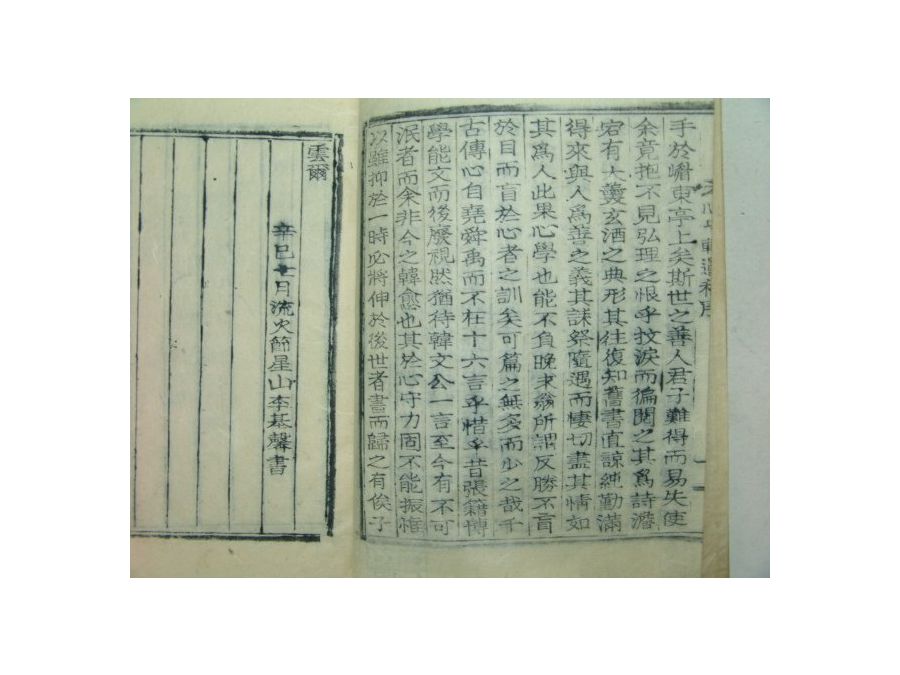 手於嶦東亭上矣斯世之善人君子難得而易失使
余竟抱不見弘理之恨乎抆淚而徧閱之其爲詩澹
宕有大羹玄酒之典形其往復知舊書直諒純勤滿
得來與人爲善之義其誄祭隨遇而悽切盡其情如
其爲人此果心學也能不負晩求翁所謂反勝不盲
於目而盲於心者之訓矣可篇之無多而少之哉千
古傳心自堯舜禹而不在十六言乎惜乎昔張籍博
學能文而後廢視然猶待韓文公一言至今有不可
泯者而余非今之韓愈也其於心守力固不能振惟
以雖抑於一時必將伸於後世者書而歸之有俟子
雲爾
辛巳七月流火節星山李基馨書